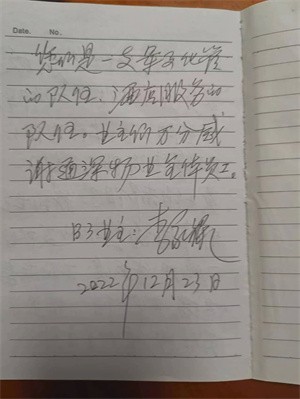 Date. No.
您们是一支军化管
的队伍,酒店服务的
队伍。业主们万分感
谢通深物业全体员工。
B3业主:李
2022年12月23日